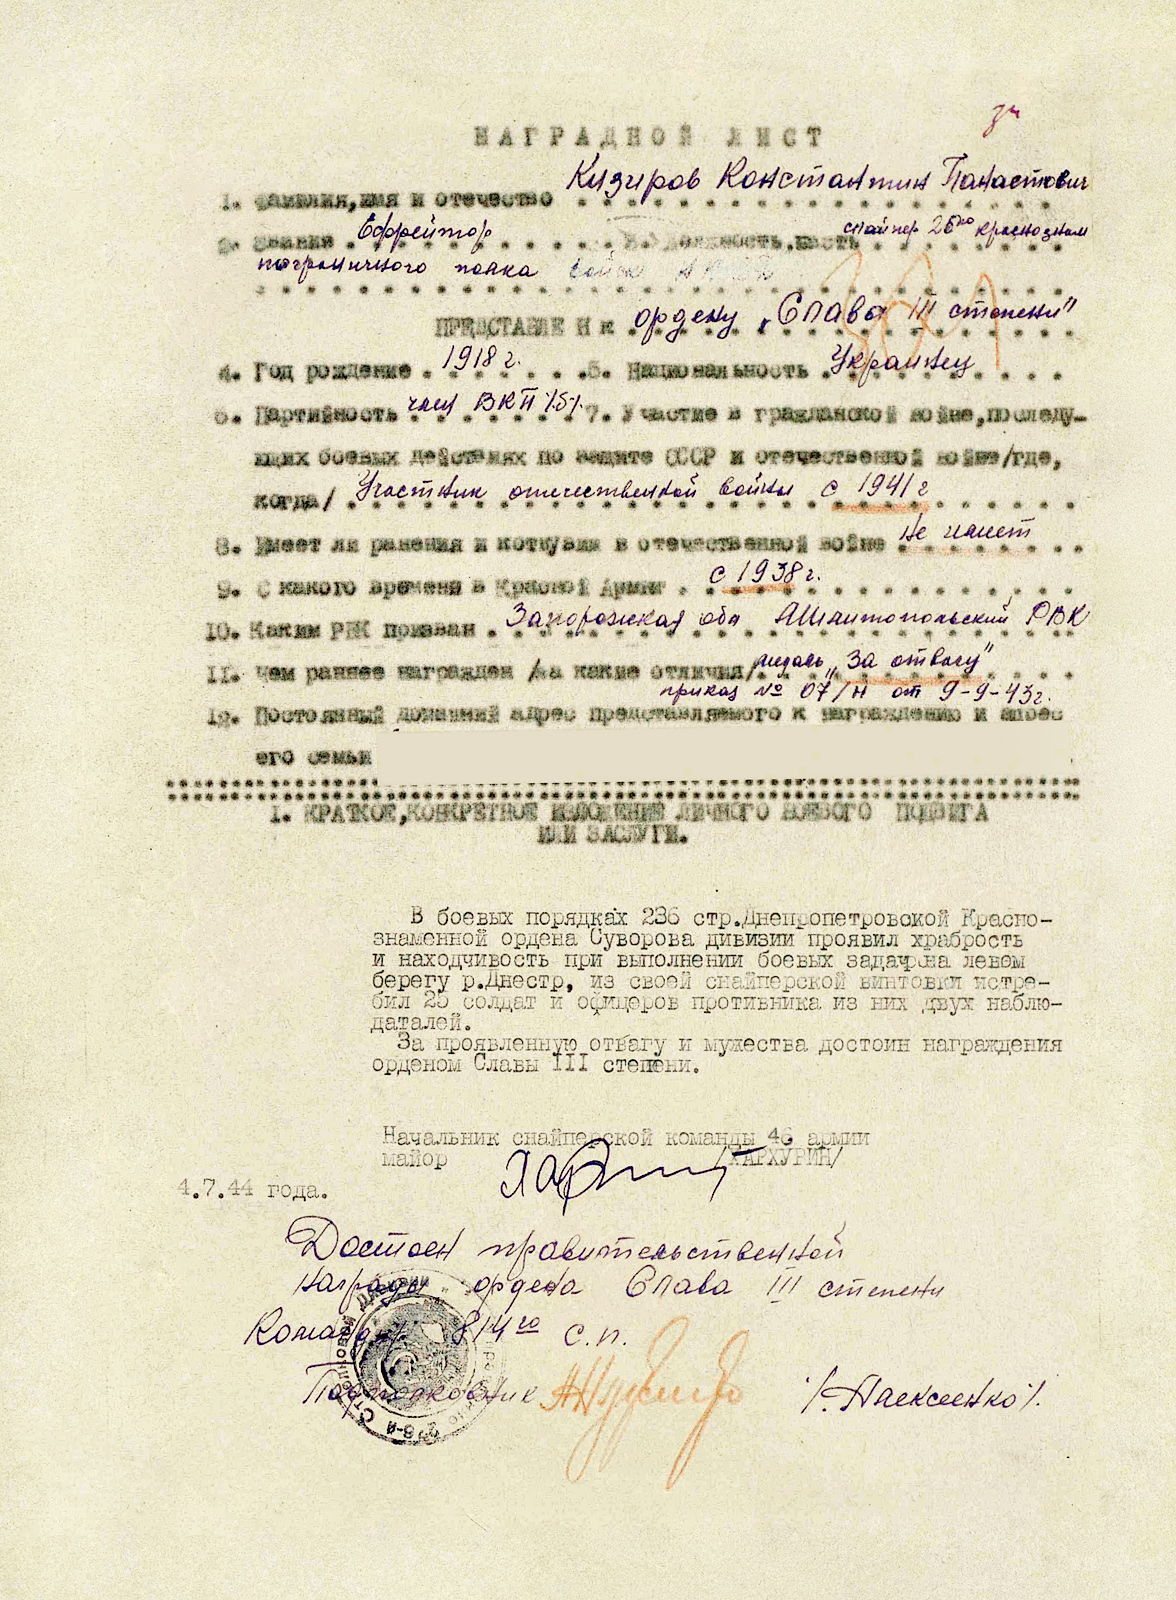 НАГРАДНОЙ ЛИСТ
Кизиров Константин Панастович
1. Фамилия,имя и отечество
2. Звание Ефрейтор 3. Должность,часть снайпер 26го краснознам
пограничного полка войск НКВД
ПРЕДСТАВЛЕН к ордену „Слава III степени"
4. Год рождение 1918 г. 5. Национальность Украинец
6. Партийность член ВКП/б/. 7. Участие в гражданской войне,последу-
ющих боевых действиях по защите СССР и отечественной войне/где,
когда/ Участник отечественной войны с 1941 г
8. Имеет ли ранения и контузии в отечественной войне Не имеет
9. С какого времени в Красной Армии с 1938 г.
10. Каким РВК призван Запорожская обл РВК
11. Чем раннее награжден /за какие отличия/ медаль „За отвагу"
приказ № 07/н от 9-9-43г.
12. Постоянный домашний адрес представляемого к награждению и адрес
его семьи
1. КРАТКОЕ,КОНКРЕТНОЕ ИЗЛОЖЕНИЕ ЛИЧНОГО БОЕВОГО ПОДВИГА
ИЛИ ЗАСЛУГИ.
В боевых порядках 236 стр.Днепропетровской Красно-
знаменной ордена Суворова дивизии проявил храбрость
и находчивость при выполнении боевых задач на левом
берегу р.Днестр, из своей снайперской винтовки истре-
бил 25 солдат и офицеров противника из них двух наблю-
даталей.
За проявленную отвагу и мужества достоин награждения
орденом Славы III степени.
Начальник снайперской команды 46 армии
майор /ХАРХУРИН/
4.7.44 года.
Достоен правительственной
награды ордена Слава III степени
Командир 814го с.п.
Подполковник /Алексеенко/.